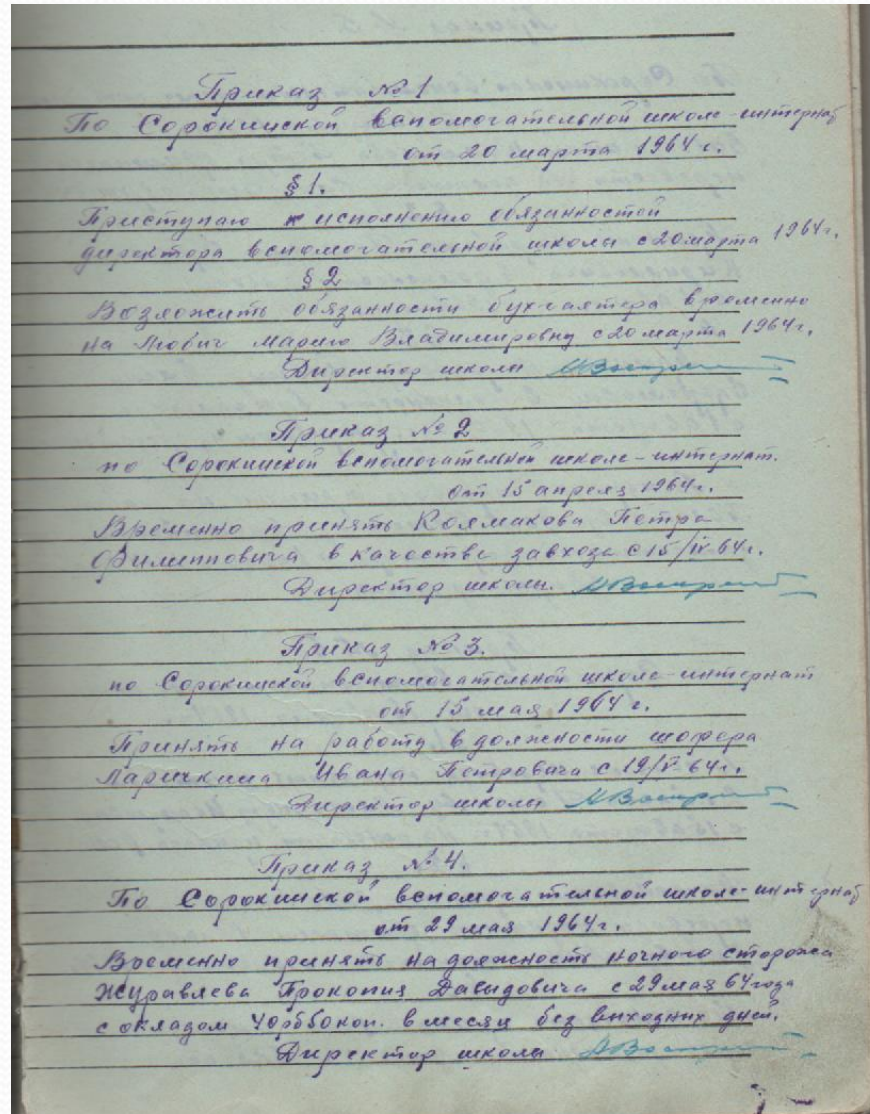 Приказ № 1
По Сорокинской вспомогательной школе-интернат
от 20 марта 1964 г.
§ 1.
Приступаю к исполнению обязанностей
директора вспомогательной школы с 20 марта 1964г.
§ 2
Возложить обязанности бухгалтера временно
на Любич Марию Владимировну с 20 марта 1964г.
Директор школы
Приказ № 2
по Сорокинской вспомогательной школе-интернат.
от 15 апреля 1964г.
Временно принять Колмакова Петра
Филипповича в качестве завхоза с 15/IV-64г.
Директор школы.
Приказ № 3.
по Сорокинской вспомогательной школе-интернат
от 15 мая 1964 г.
Принять на работу в должности шофера
Ларичкина Ивана Петровича с 19/V-64г.
Директор школы
Приказ № 4.
По Сорокинской вспомогательной школе-интернат
от 29 мая 1964г.
Временно принять на должность ночного сторожа
Журавлева Прокопия Давыдовича с 29 мая 64 года
с окладом 40р66коп. в месяц без выходных дней.
Директор школы